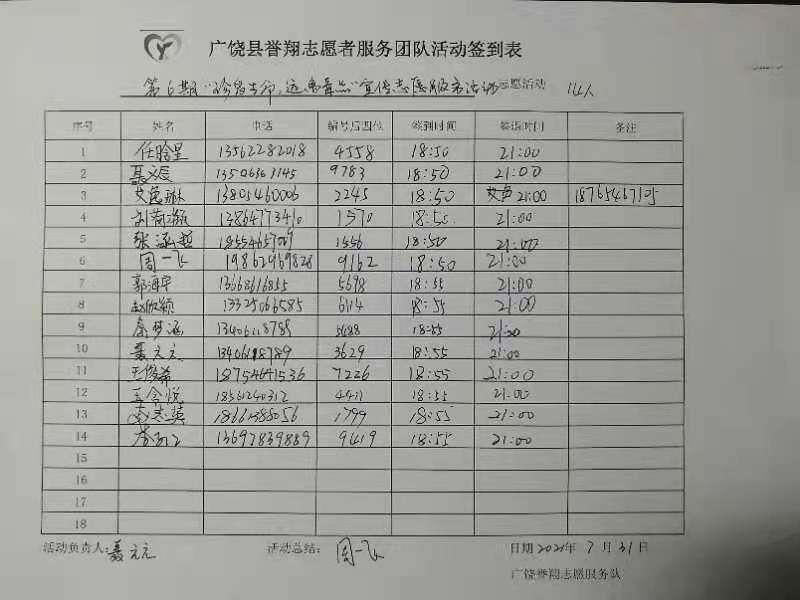 广饶县誉翔志愿者服务团队活动签到表
第6期"珍爱生命,远离毒品"宣传志愿服务活动志愿活动 14人
序号 姓名 电话 编号后四位 签到时间 签退时间 备注
1 任晗星 13562282018 4558 18:50 21:00
2 聂文辰 13506363145 9783 18:50 21:00
3 13805460006 2245 18:50 21:00 18765467105
4 刘 13864773410 1570 18:55 21:00
5 张涵哲 1556 18:50 21:00
6 周一飞 19862969828 9162 18:50 21:00
7 郭海宇 13668616855 5698 18:55 21:00
8 赵欣颖 13325066585 6114 18:55 21:00
9 梦涵 13406118789 5488 18:55 21:00
10 聂元元 13406118789 3629 18:55 21:00
11 王俊希 18754641536 7226 18:55 21:00
12 悦 18561240312 4411 18:55 21:00
13 李志英 18661388056 1799 18:55 21:00
14 13697839889 9419 18:55 21:00
15
16
17
18
活动负责人:聂元元 活动总结: 周一飞 日期 2021年 7 月 31 日
广饶誉翔志愿服务队